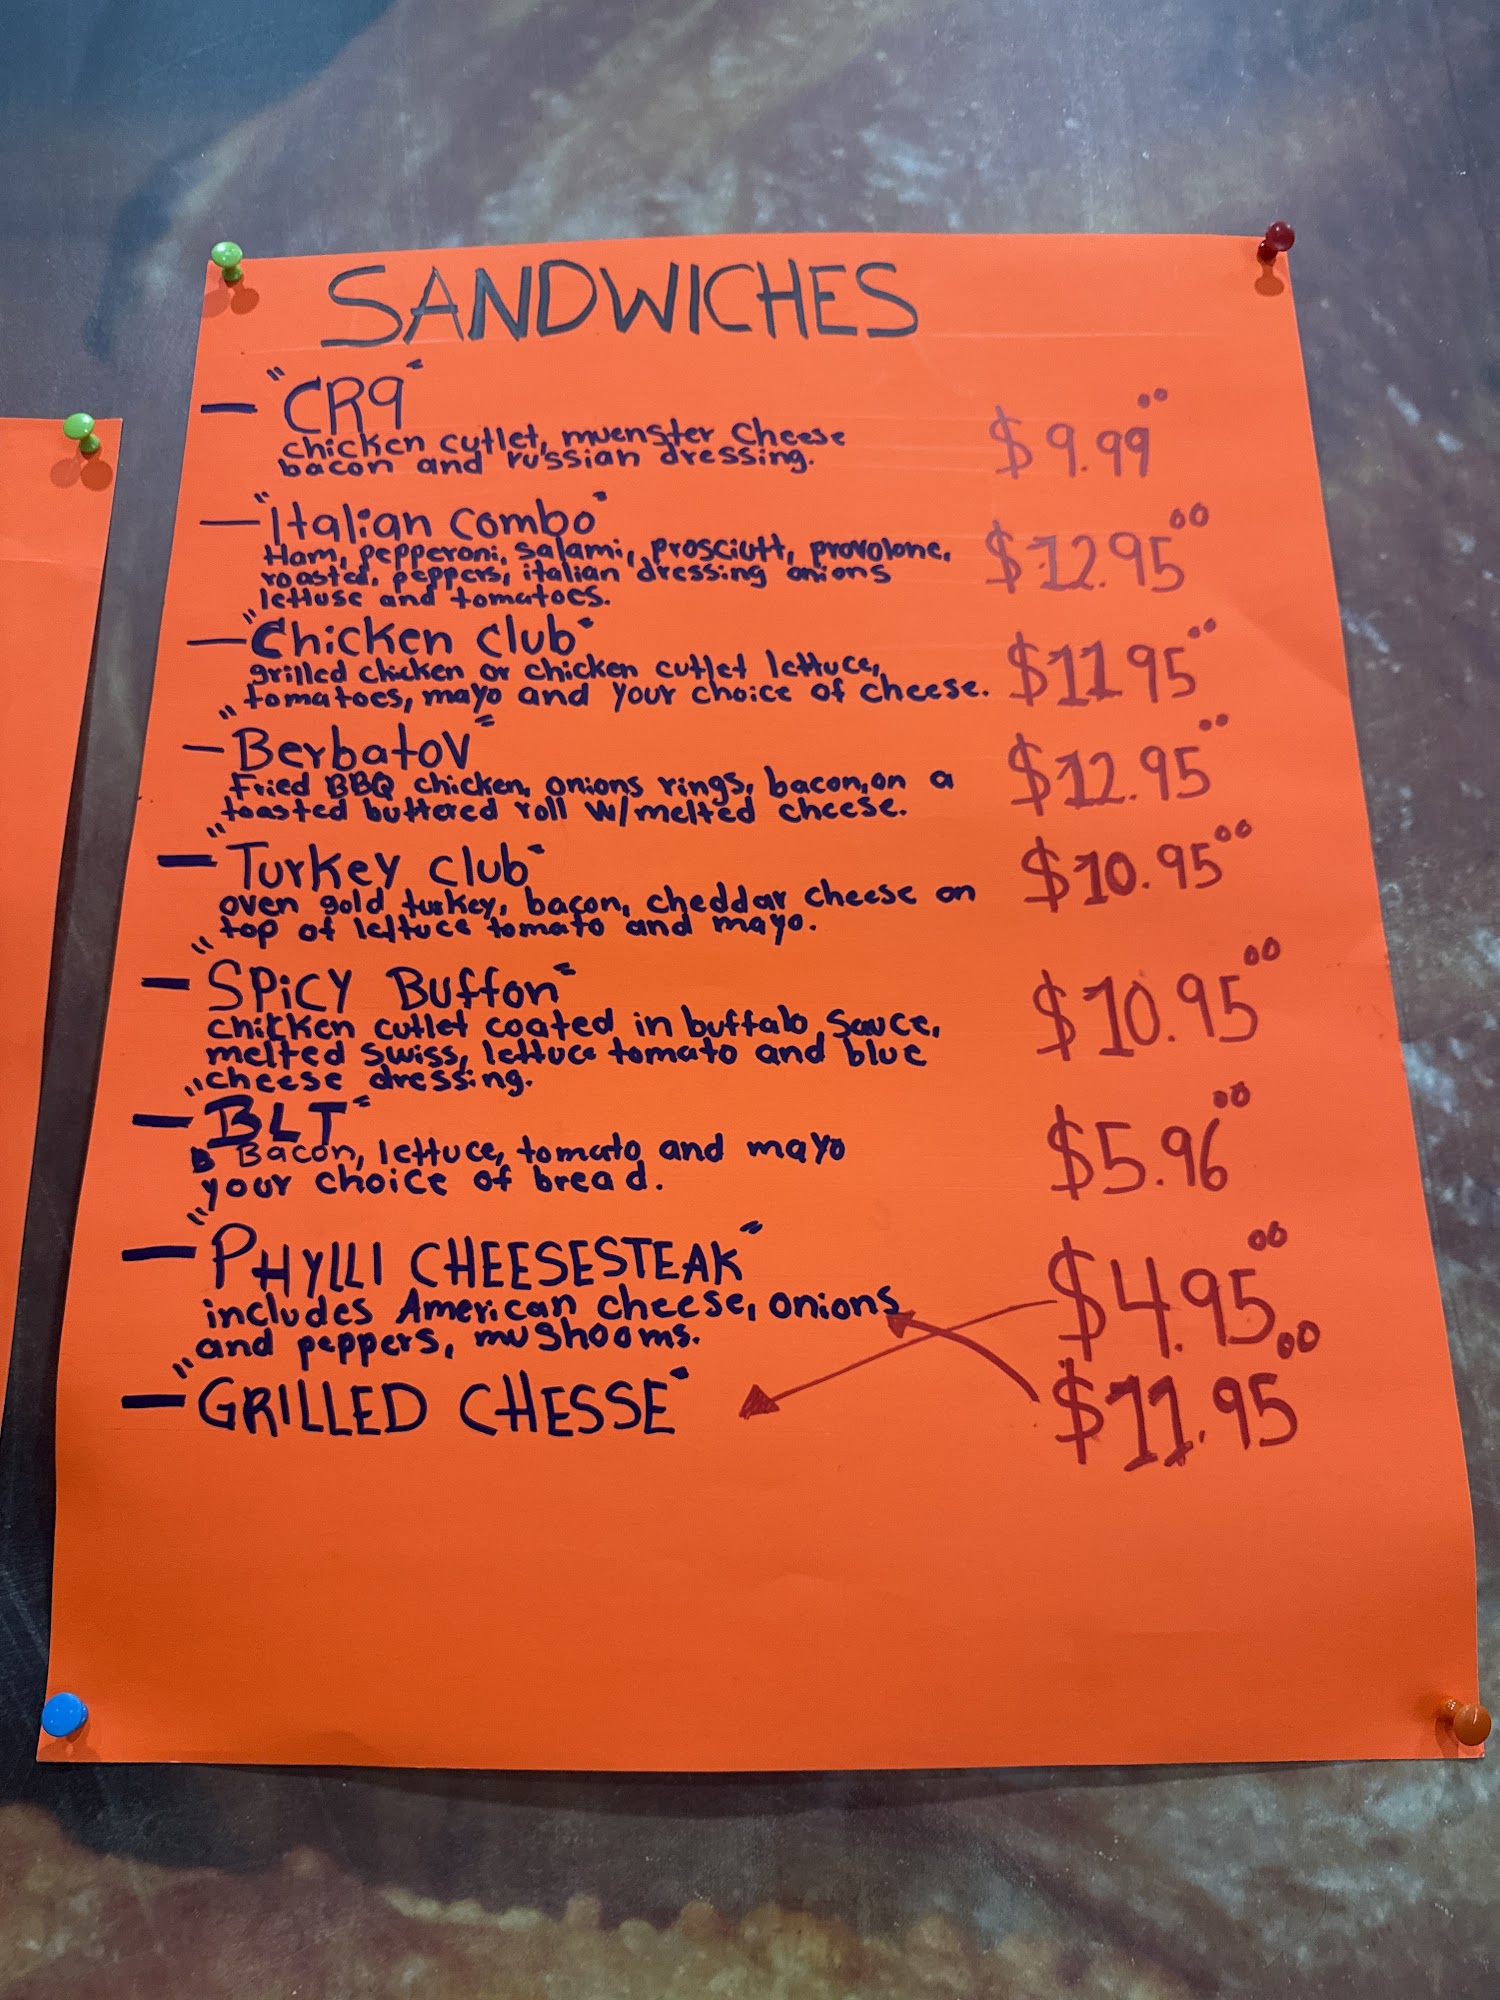 SANDWICHES
— "CR9"
chicken cutlet, muenster cheese
bacon and russian dressing.
$9.99 00
— "Italian combo"
Ham, pepperoni, salami, prosciutt, provolone,
roasted, peppers, italian dressing onions
lettuse and tomatoes.
$12.95 00
— "Chicken club"
grilled chicken or chicken cutlet lettuce,
tomatoes, mayo and your choice of cheese.
$11.95 00
— "Berbatov"
Fried BBQ chicken, onions rings, bacon, on a
toasted buttered roll w/melted cheese.
$12.95 00
— "Turkey club"
oven gold turkey, bacon, cheddar cheese on
top of lettuce tomato and mayo.
$10.95 00
— "SPiCY Buffon"
chicken cutlet coated in buffalo sauce,
melted swiss, lettuce tomato and blue
cheese dressing.
$10.95 00
— "BLT"
B Bacon, lettuce, tomato and mayo
your choice of bread.
$5.96 00
— "PHYLLI CHEESESTEAK"
includes American cheese, onions
and peppers, mushooms.
$4.95 00
— "GRILLED CHESSE"
$11.95 00